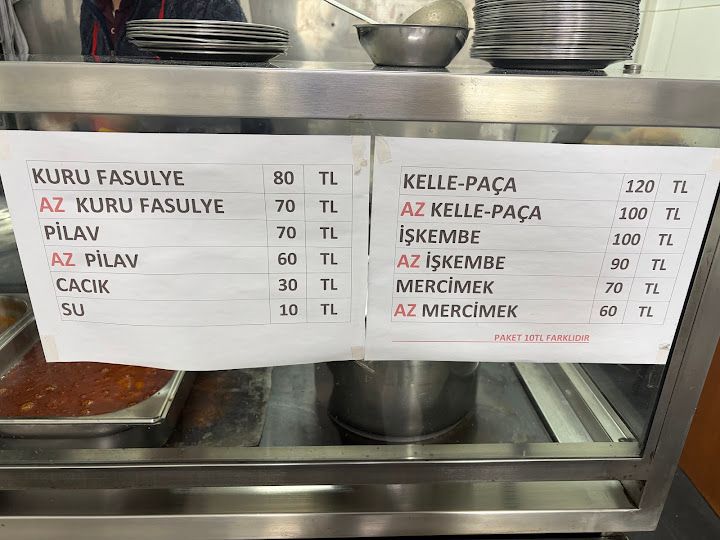 KURU FASULYE 80 TL
AZ KURU FASULYE 70 TL
PİLAV 70 TL
AZ PİLAV 60 TL
CACIK 30 TL
SU 10 TL
KELLE-PAÇA 120 TL
AZ KELLE-PAÇA 100 TL
İŞKEMBE 100 TL
AZ İŞKEMBE 90 TL
MERCİMEK 70 TL
AZ MERCİMEK 60 TL
PAKET 10TL FARKLIDIR